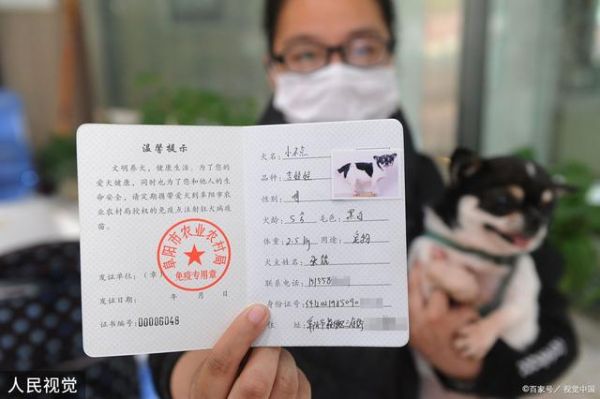 温馨提示
文明养犬，健康生活。为了您的
爱犬健康，同时也为了您和他人的生
命安全，请定期携带爱犬到阜阳市农
业农村局授权的免疫点注射狂犬病疫
苗。
阜阳市农业农村局
免疫专用章
发证单位：（章）
发证日期： 年 月 日
证书编号：00006048
犬名：
品种：
性别：
犬龄：5岁 毛色：黑白
体重：2.5kg 用途：宠物
犬主姓名：
联系电话：
身份证号：
住址：
人民视觉
©百家号／视觉中国